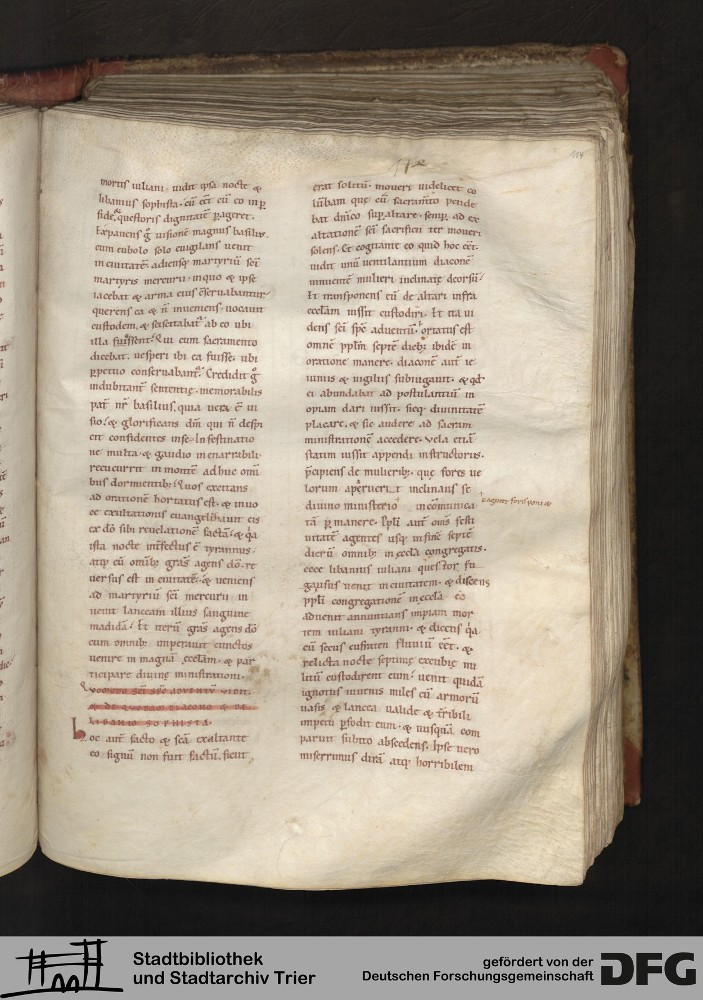 114
mortis iuliani. uidit ipsa nocte &
libanius sophista. cū cēt cū eo in p
fide, questoris dignitatē pageret.
Expauens g̃ uisionē magnus basilius.
cum eubolo solo euigilans uenit
in ciuitatē adiensq; martyriū scī
martyris mercurii. in quo & ipse
iacebat & arma eius cseruabantur.
querens ea & ñ inueniens. uocauit
custodem, & sciscitabat ab eo ubi
illa fuissent. Qui cum sacramento
dicebat. uesperi ibi ea fuisse. ubi
ppetuo conseruabant. Credidit g̃
indubitant sententię. memorabilis
pat nr basilius, quia uera ē ui
sio. & glorificans dm qui ñ despi
cit confidentes in se. In festinatio
ne multa. & gaudio inenarrabili.
recucurrit in montē adhuc omi
bus dormientib; Quos excitans
ad orationē hortatus est. & in uo
ce exultationis euangelizauit eis
ex dō sibi reuelationē factā. & qa
ista nocte infectus ē tyrannus.
atq; cū omib; gras agens dō. re
uersus est in ciuitatē. & ueniens
ad martyriū scī mercurii in
uenit lanceam illius sanguine
madidā. Et iterū gras agens dō
cum omnib; imperauit cunctos
uenire in magnā ęcclam. & par
ticipare diuinę ministrationi.
& de quodam diacono & de
libanio sophista.
Hoc aut facto & scā exaltante
eo signū non fuit factū. sicut
erat solitū. moueri uidelicet co
lūbam quę cū sacramto pende
bat dnico sup altare. semp ad ex
altationē scī sacrificii ter moueri
solens. Et cogitante eo quid hoc cēt.
uidit unū uentilantium diaconē
innuentē mulieri inclinatę deorsū.
Et transponens eū de altari infra
ecclam iussit custodiri. Et ita ui
dens scī spc aduentū. ortatus est
omnē pplm septē dieb; ibidē in
oratione manere. diaconē aut ie
iuniis & uigiliis subiugauit. & qd
ei abundabat ad postulantiū in
opiam dari iussit. sicq; diuinitatē
placare, & sic audere ad sacram
ministrationē accedere. Vela etiā
statim iussit appendi instructoriis.
pcipiens de mulierib; quę fores ue
lorum aperuerit inclinans se
diuino ministerio in cōmunica
tā pmanere. Ppli aut omīs festi
uitatē agentes usq; in finē septē
dierū omnib; in eccla congregatis.
ecce libanius iuliani questor fu
gariūs uenit in ciuitatem. & discens
ppli congregationē in eccla eo
aduenit annuntians impiam mor
tem iuliani tyranni. & dicens qa
cū secus eufraten fluuiū cēt. &
relicta nocte septimę excubię mi
litū custodirent eum. uenit quidā
ignotus iuuenis miles cū armorū
uasis. & lancea ualide & tribili
impetu pfodit eum. & nusquā com
paruit subito abscedens. Ipse uero
miserrimus dirā atq; horribilem
Stadtbibliothek
und Stadtarchiv Trier
gefördert von der
Deutschen Forschungsgemeinschaft
DFG